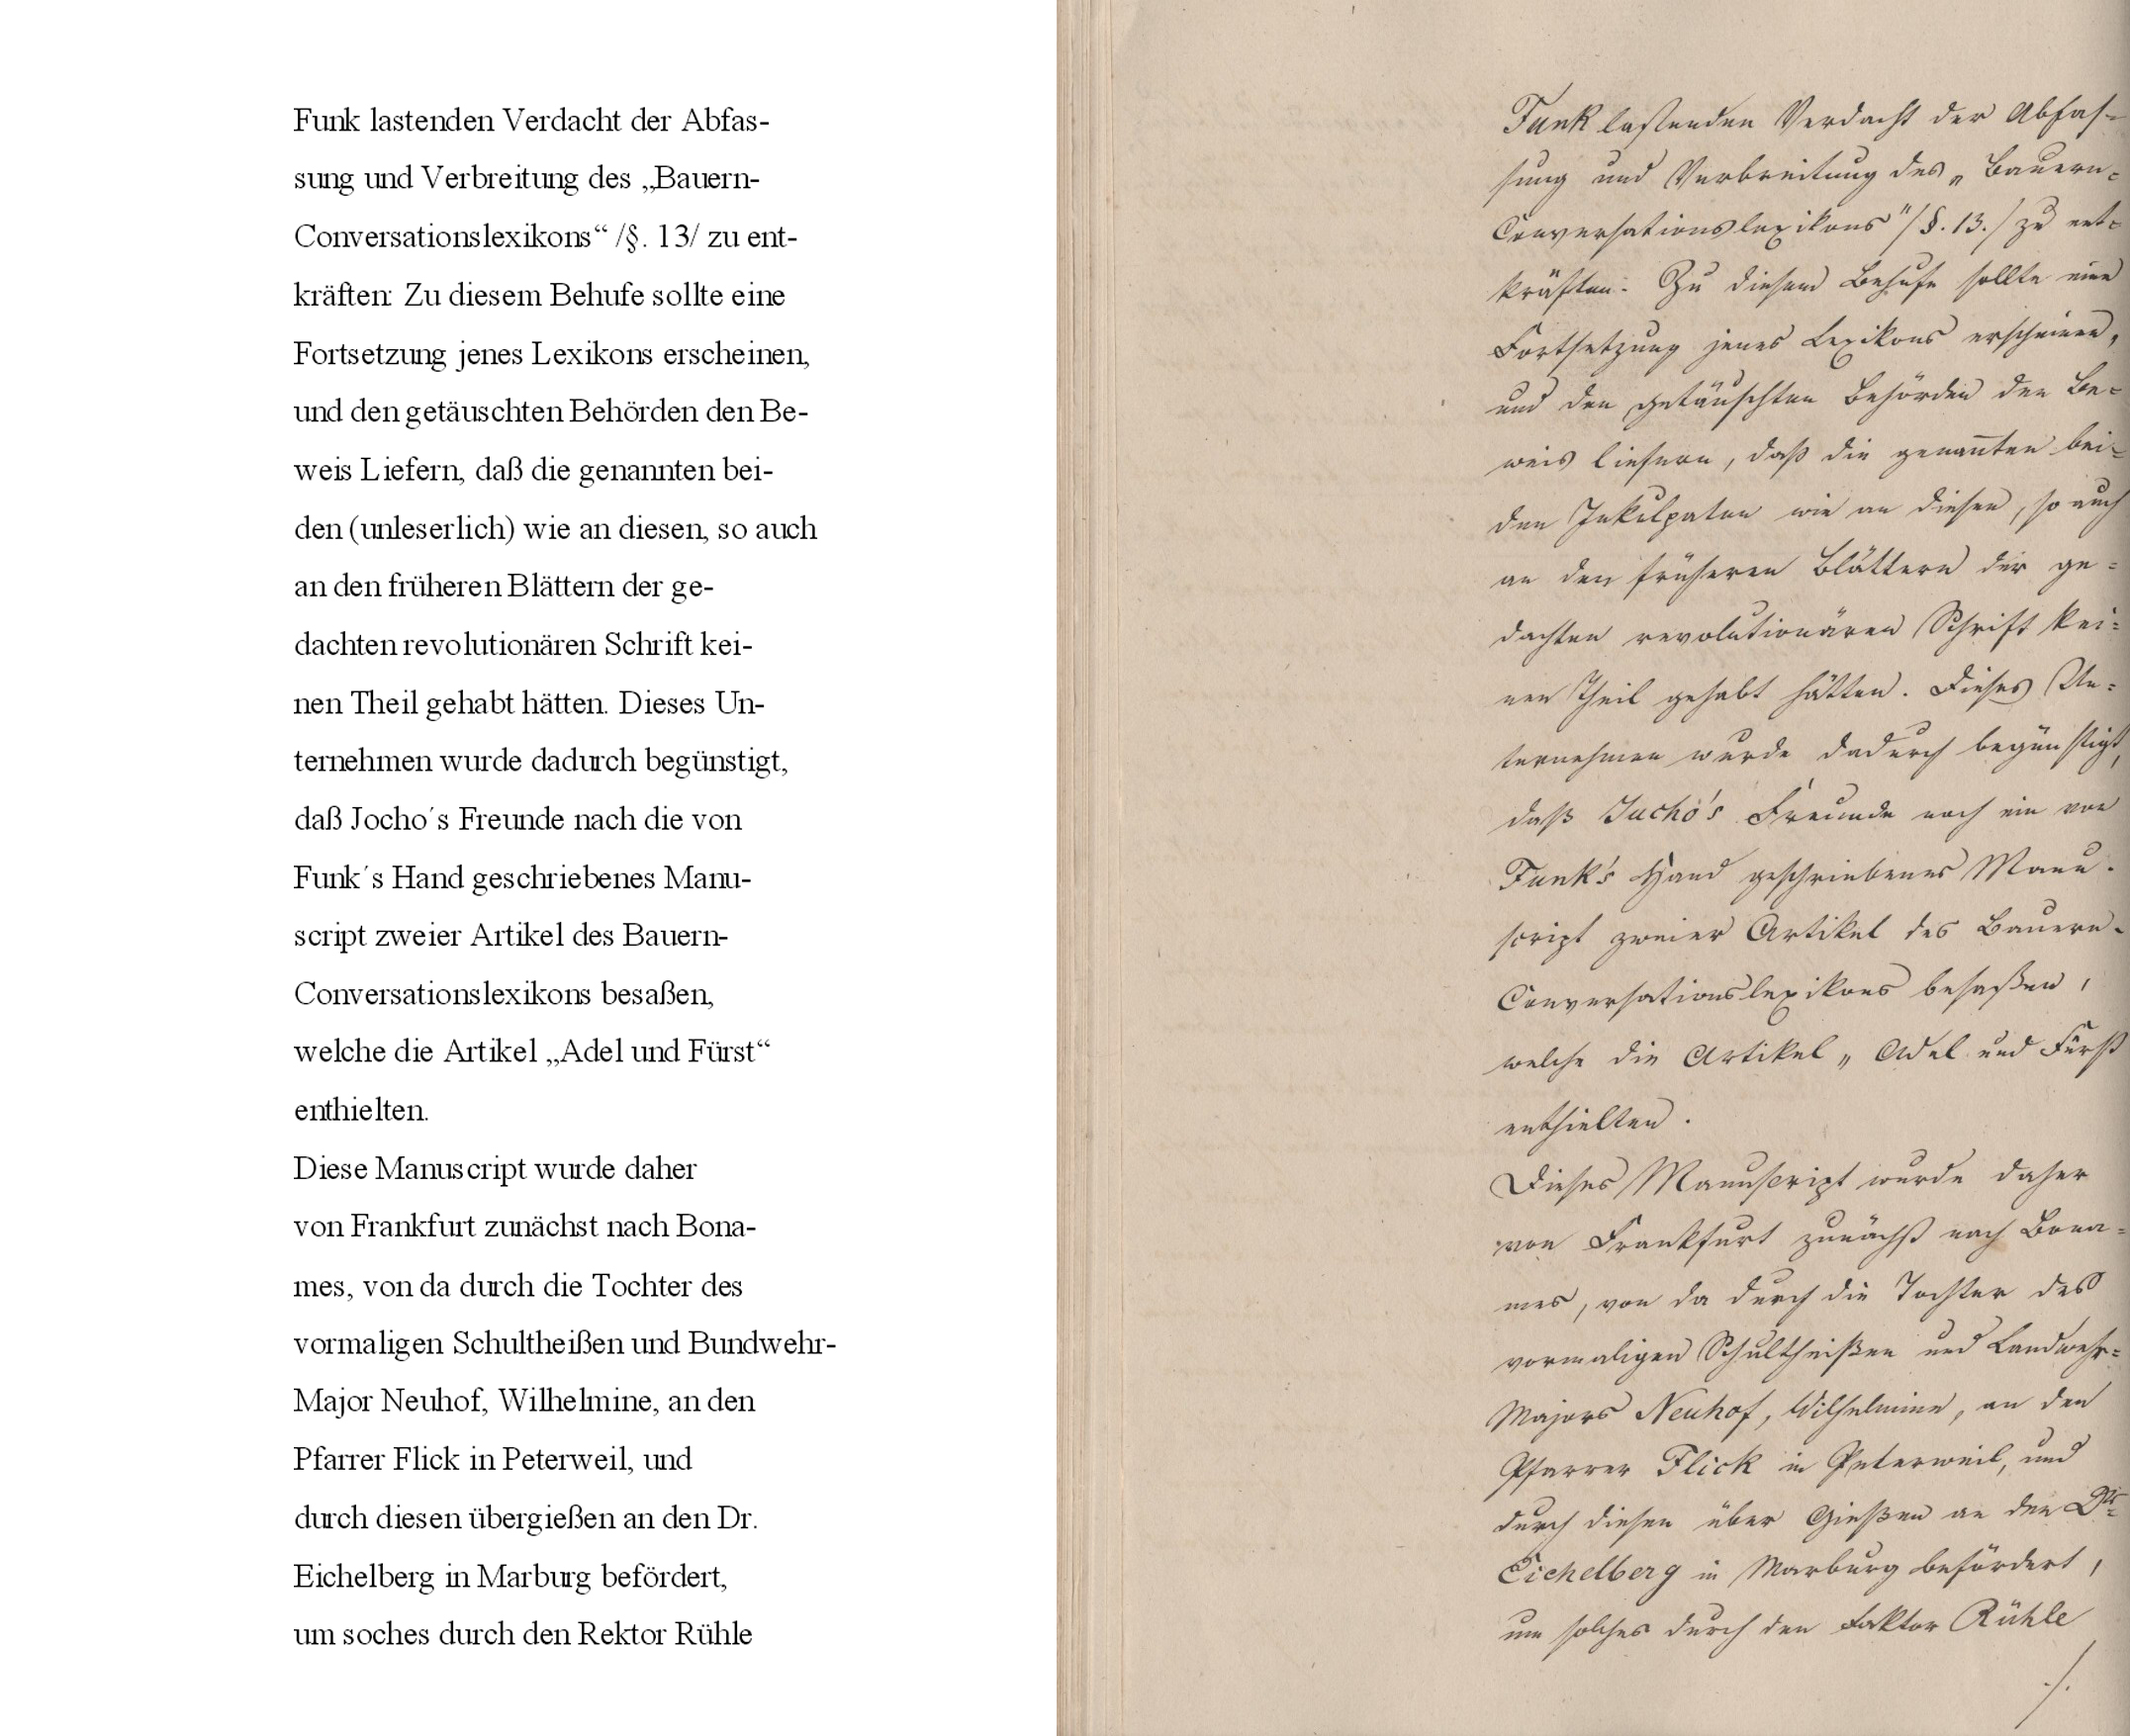 Funk lastenden Verdacht der Abfas-
sung und Verbreitung des „Bauern-
Conversationslexikons“ /§. 13/ zu ent-
kräften: Zu diesem Behufe sollte eine
Fortsetzung jenes Lexikons erscheinen,
und den getäuschten Behörden den Be-
weis Liefern, daß die genannten bei-
den (unleserlich) wie an diesen, so auch
an den früheren Blättern der ge-
dachten revolutionären Schrift kei-
nen Theil gehabt hätten. Dieses Un-
ternehmen wurde dadurch begünstigt,
daß Jocho´s Freunde nach die von
Funk´s Hand geschriebenes Manu-
script zweier Artikel des Bauern-
Conversationslexikons besaßen,
welche die Artikel „Adel und Fürst“
enthielten.
Diese Manuscript wurde daher
von Frankfurt zunächst nach Bona-
mes, von da durch die Tochter des
vormaligen Schultheißen und Bundwehr-
Major Neuhof, Wilhelmine, an den
Pfarrer Flick in Peterweil, und
durch diesen übergießen an den Dr.
Eichelberg in Marburg befördert,
um soches durch den Rektor Rühle
Funk lastenden Verdacht der Abfas-
sung und Verbreitung des „Bauern-
Conversationslexikons" /§. 13./ zu ent-
kräften. Zu diesem Behufe sollte eine
Fortsetzung jenes Lexikons erscheinen,
und den getäuschten Behörden den Be-
weis liefern, daß die genañten bei-
den Inkulpaten wie an diesen, so auch
an den früheren Blättern der ge-
dachten revolutionären Schrift kei-
nen Theil gehabt hätten. Dieses Un-
ternehmen wurde dadurch begünstigt,
daß Jucho's Freunde noch ein von
Funk's Hand geschriebenes Manu-
script zweier Artikel des Bauern-
Conversationslexikons besaßen,
welche die Artikel „Adel und Fürst
enthielten.
Dieses Manuscript wurde daher
von Frankfurt zunächst nach Bona-
mes, von da durch die Tochter des
vormaligen Schultheißen und Landwehr-
Majors Neuhof, Wilhelmine, an den
Pfarrer Flick in Peterweil, und
durch diesen über Gießen an den Dr.
Eichelberg in Marburg befördert,
um solches durch den Faktor Rühle
./.